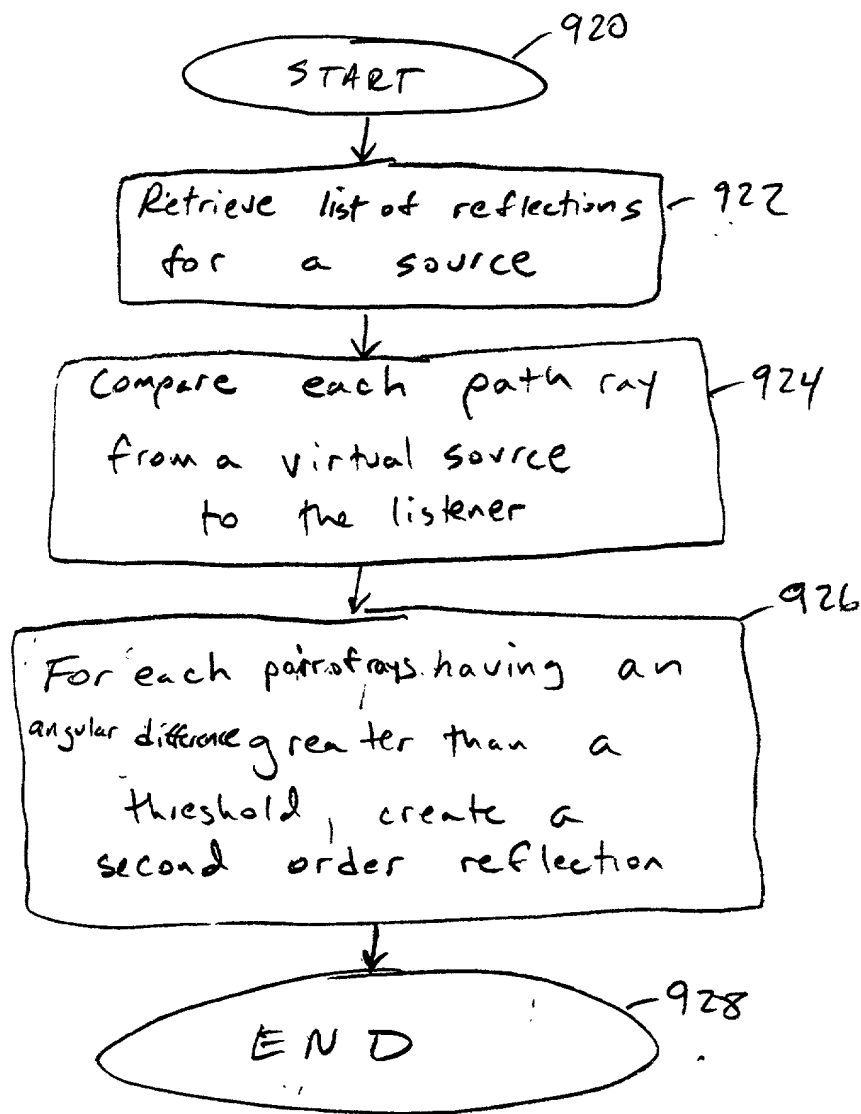 920
START
Retrieve list of reflections
922
for a source
Compare each path ray
924
from a virtual source
to the listener
926
For each pair of rays having an
angular difference greater than a
threshold, create a
second order reflection
928
END